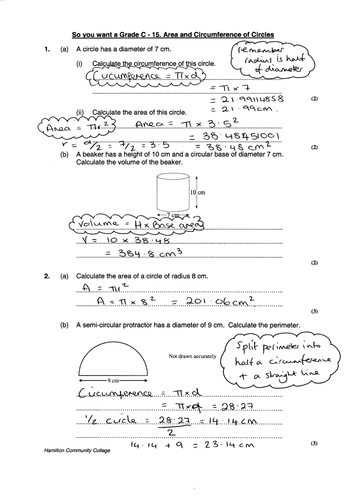 So you want a Grade C - 15. Area and Circumference of Circles
remember
radius is half
of diameter
1. (a) A circle has a diameter of 7 cm.
(i) Calculate the circumference of this circle.
Circumference = πxd
= π x 7
= 21.99114858
= 21.99cm. (2)
(ii) Calculate the area of this circle.
Area = πr²
Area = π x 3.5²
= 38.48451001
r = d/2 = 7/2 = 3.5
= 38.48 cm² (2)
(b) A beaker has a height of 10 cm and a circular base of diameter 7 cm.
Calculate the volume of the beaker.
10 cm
7 cm
Volume = H x Base area
V = 10 x 38.48
= 384.8 cm³
(2)
2. (a) Calculate the area of a circle of radius 8 cm.
A = πr²
A = π x 8² = 201.06cm²
(3)
(b) A semi-circular protractor has a diameter of 9 cm. Calculate the perimeter.
Split perimeter into
half a circumference
+ a straight line
Not drawn accurately
9 cm
Circumference = πxd
= πx9 = 28.27
½ circle = 28.27 = 14.14 cm
2
14.14 + 9 = 23.14 cm (3)
Hamilton Community College